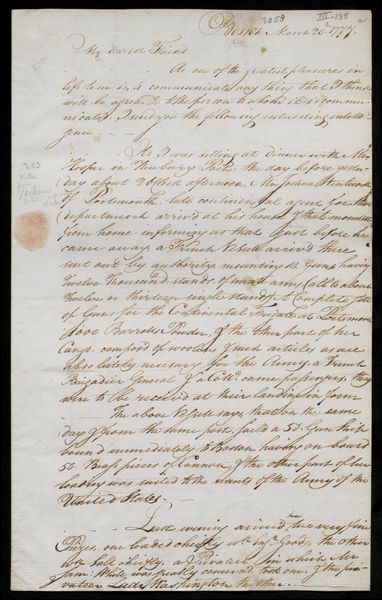 2058
III-138
Boston March 20th 1777.
My dearest Friend
As one of the greatest pleasures in
life time is, to communicate any thing that I think
will be agreeable to the person to whom it is commu-
nicated I send you the following interesting intelli-
gence. —
As I was sitting at dinner with Mr
Hooper in Newbury Port, the day before yester-
day about 2 oClock afternoon, Mr Joshua Wentworth
of Portsmouth, late continental agent for that
department arrived at his house, that moment
from home informing us that just before he
came away a French Vessell arrived there
sent out by authority mounting Guns having
Twelve Thousand stands of arms (all to about
twelve or thirteen single stand), A Complete set
of Guns for the Continental Frigate at Portsmouth
1000 Barrells Powder, & the other part of her
Cargo composed of woolens & such articles as are
absolutely necessary for the Army, a French
Brigadier General & a Coll. came passengers, they
were to be received at their landing in form
The above Vessell says, that on the same
day & from the same port, sailed a 50 Gun Ship
bound immediately to Boston having on board
50 Brass pieces of Cannon, & the other part of her
loading was suited to the wants of the Army of the
United States. —
Last evening arrived here two very fine
Prizes, one loaded chiefly with dry Goods the other
with Salt chiefly. a Privateer in which Mr
Sam: White was greatly concerned took one & the pri-
vateer Lady Washington the other. —